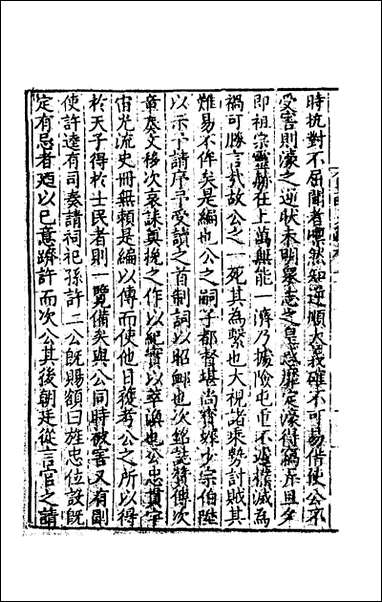 時抗對不屈聞者凜然知逆順大義確不可易借使公不
受害則濠之逆狀未明羣志之皇惑靡定濠得竊弄且夕
即祖宗靈赫在上萬無能一濟乃據險屯重不遽撲滅為
禍可勝言哉故公之一死其為繫也大視諸乘勢討賊其
難易不侔矣是編也公之嗣子都督堪尚寶墀少宗伯陞
以示予請序予受讀之首制詞以昭卹也次銘誌贊傳次
章奏文移次哀誄輓之作以紀實以萃渙也公忠貫宇
宙光流史冊無賴是編以傳而使他日復考公之所以得
於天子得於士民者則一覽備矣與公同時被害又有副
使許逵有司奏請祠祀孫許二公既賜額曰旌忠位設既
定有忌者以已意躋許而次公其後朝廷從言官之請